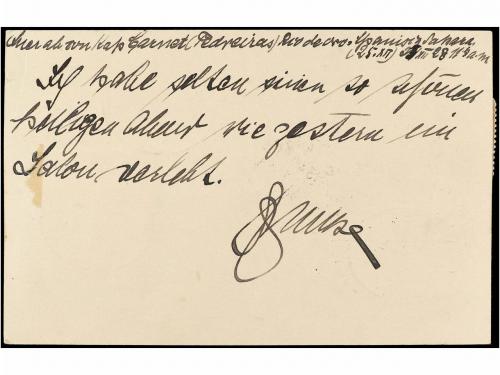 Kap Garnet (Pedreiras) Rio de oro. Spanisch Sahara
(25.XII)
Ich habe selten einen so schönen
heiligen Abend wie gestern im
Salon verlebt.